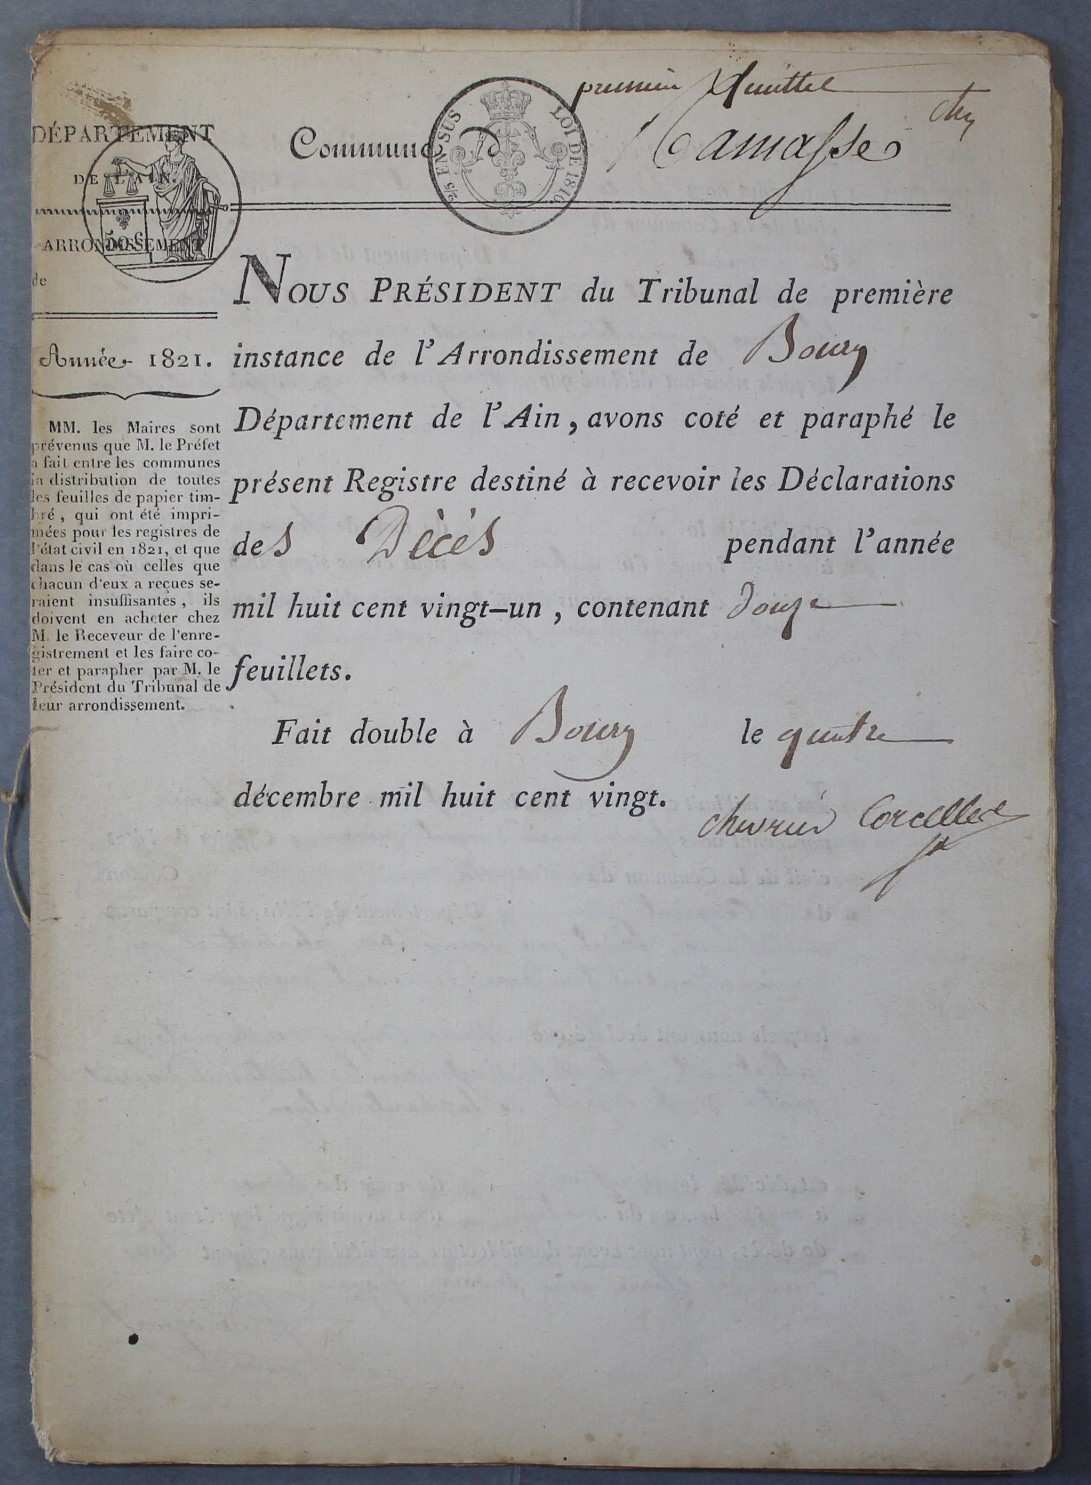 premier feuillet
DÉPARTEMENT
DE L'AIN.
ARRONDISSEMENT
de
50 C.
Commune de Ramasse
2/5 EN SUS
LOI DE 1816.
Année 1821.
MM. les Maires sont
prévenus que M. le Préfet
a fait entre les communes
la distribution de toutes
les feuilles de papier tim-
bré, qui ont été impri-
mées pour les registres de
l'état civil en 1821, et que
dans le cas où celles que
chacun d'eux a reçues se-
raient insuffisantes, ils
doivent en acheter chez
M. le Receveur de l'enre-
gistrement et les faire co-
ter et parapher par M. le
Président du Tribunal de
leur arrondissement.
NOUS PRÉSIDENT du Tribunal de première
instance de l'Arrondissement de Bourg
Département de l'Ain, avons coté et paraphé le
présent Registre destiné à recevoir les Déclarations
des Décès pendant l'année
mil huit cent vingt-un, contenant douze
feuillets.
Fait double à Bourg le quatre
décembre mil huit cent vingt.
chevrier Corcelles